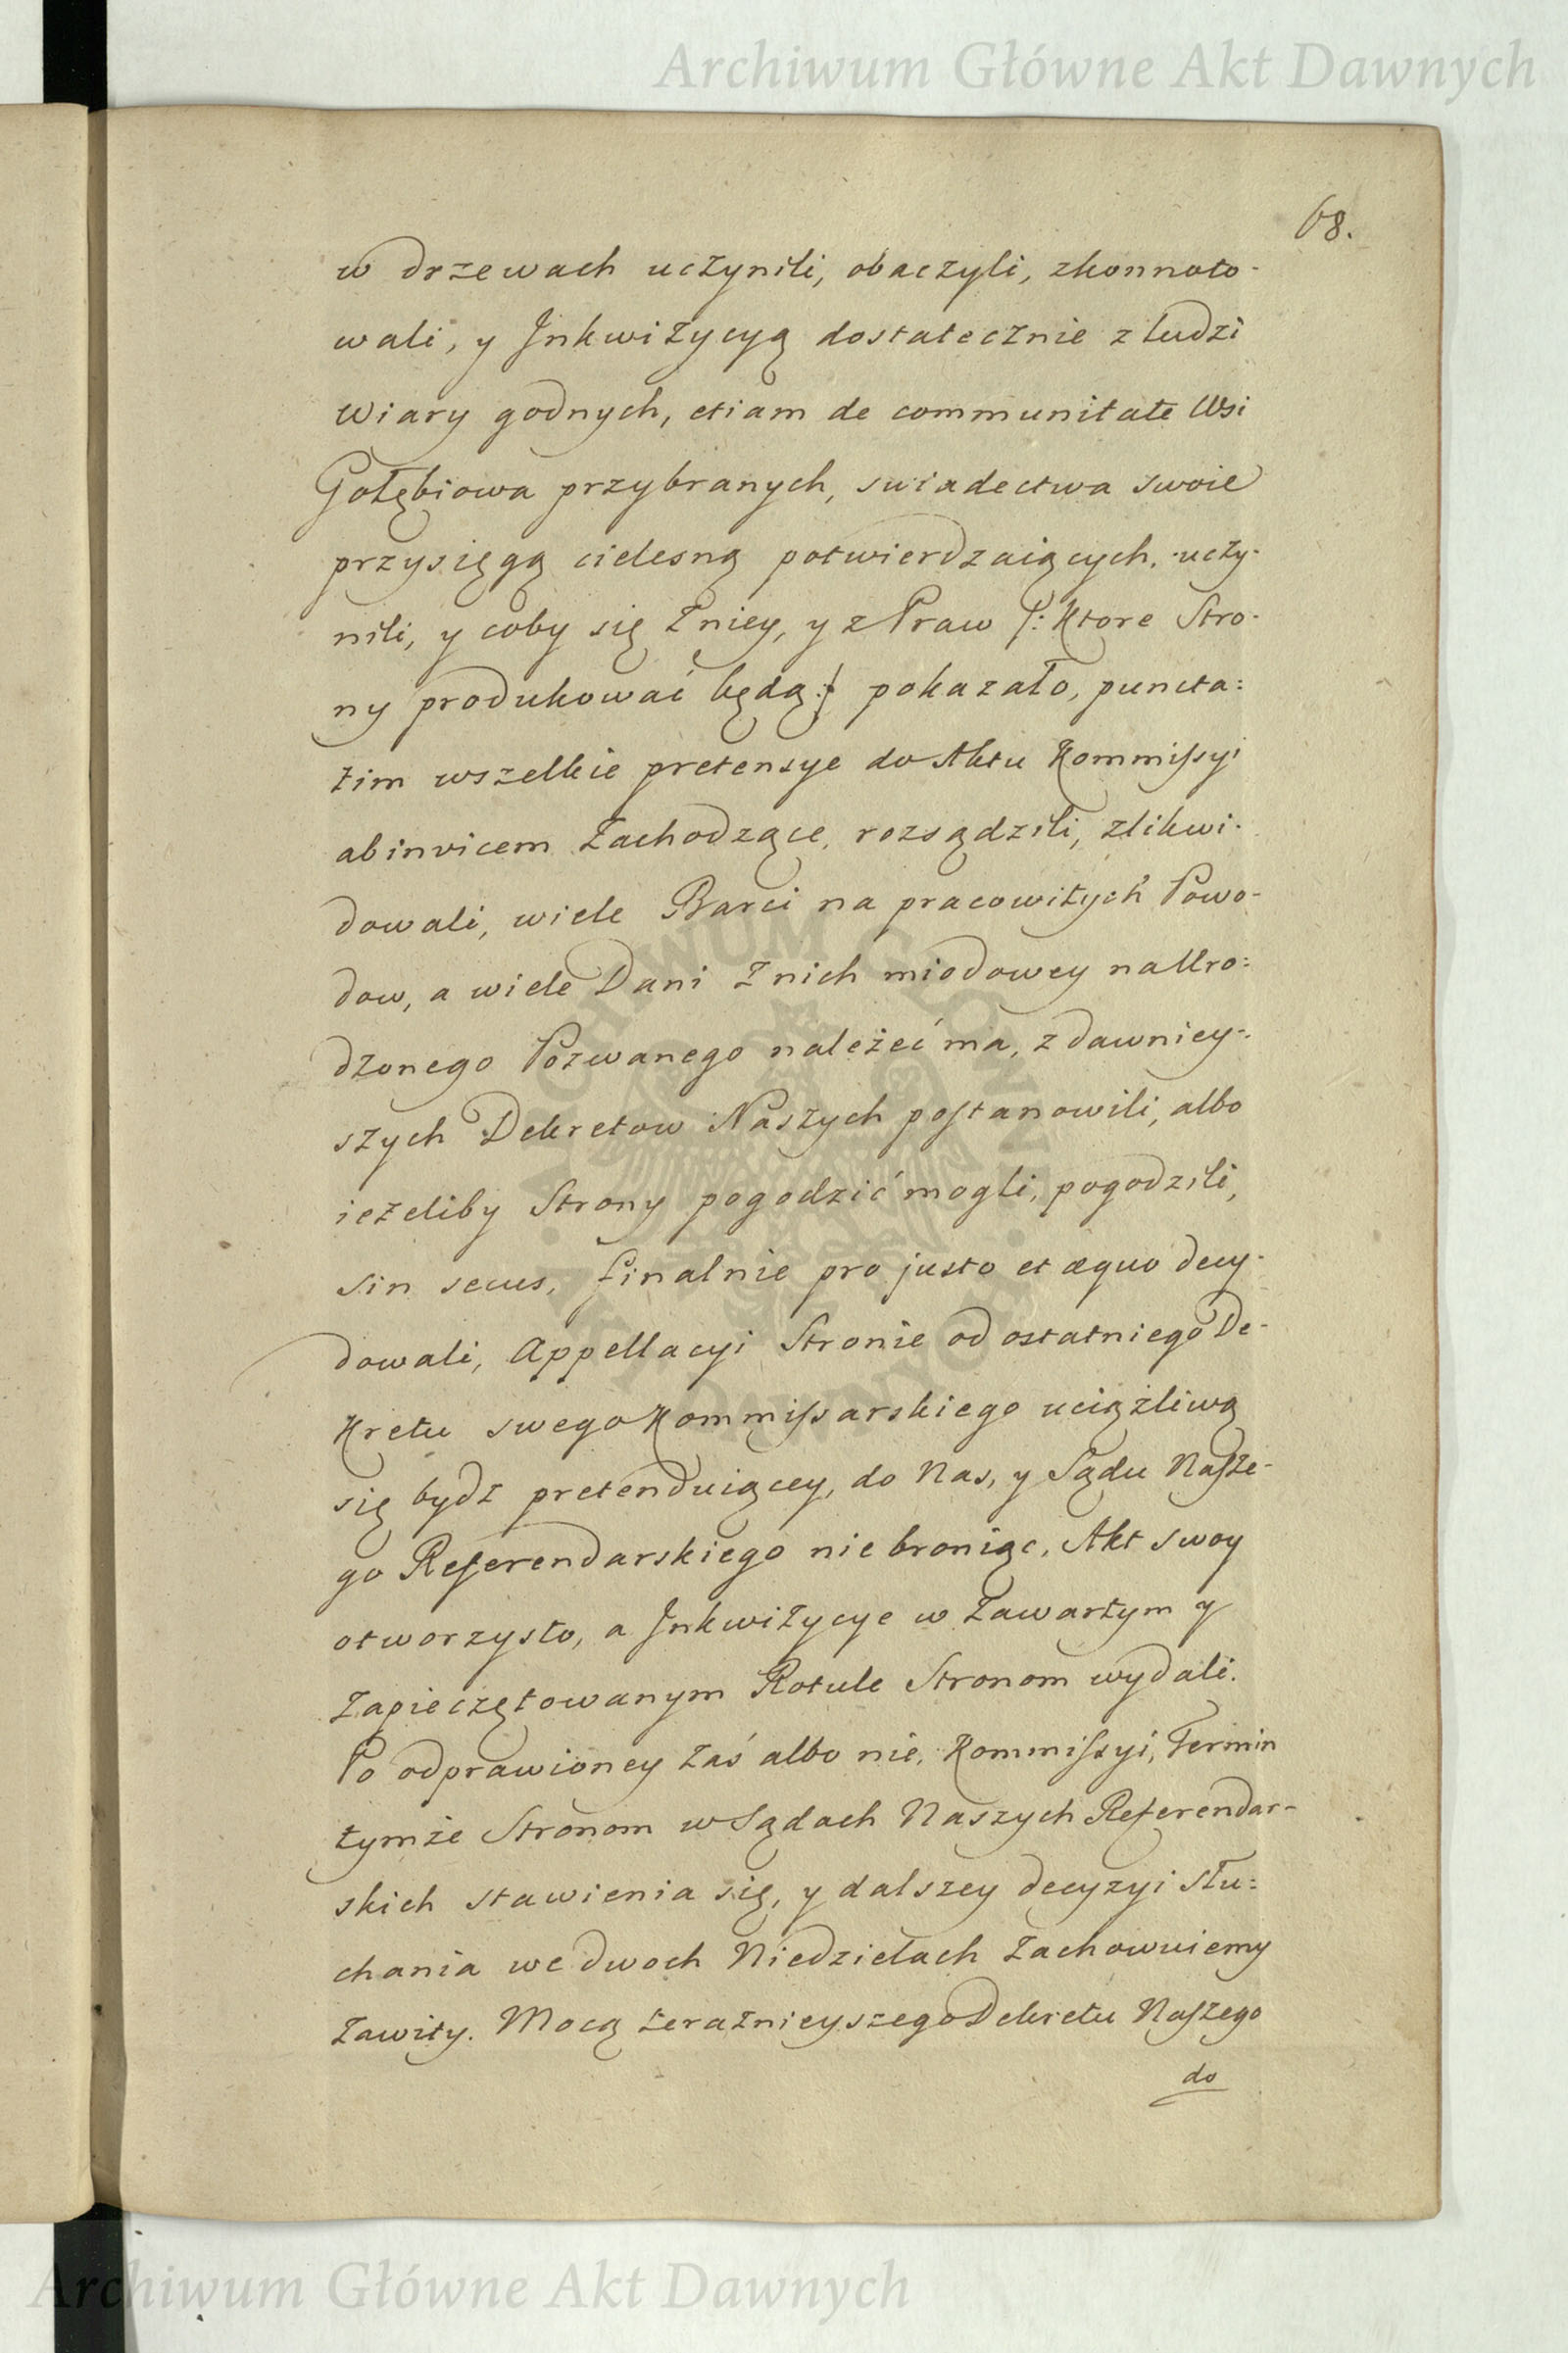 Archiwum Główne Akt Dawnych
68.
w drzewach uczynili, obaczyli, zkonnoto-
wali, y Inkwizycyą dostatecznie z ludzi
Wiary godnych, etiam de communitate Wsi
Gołębiowa przybranych, swiadectwa swoie
przysięgą cielesną potwierdzaiących, uczy-
nili, y coby się z niey, y z Praw /: Ktore Stro-
ny produkować będą :/ pokazało, puncta=
tim wszelkie pretensye do Aktu Kommissyi
abinvicem zachodzące, rozsądzili, zlikwi-
dowali, wiele Barci na pracowitych Powo-
dow, a wiele Dani z nich miodowey na Uro=
dzonego Pozwanego należeć ma, z dawniey-
szych Dekretow Naszych postanowili, albo
ieżeliby Strony pogodzić mogli, pogodzili,
sin secus, finalnie pro justo et æquo decy-
dowali, Appellacyi Stronie od ostatniego De-
kretu swego Kommissarskiego uciążliwą
się bydz pretenduiącey, do Nas, y Sądu Nasze-
go Referendarskiego nie broniąc, Akt swoy
otworzysto, a Inkwizycye w zawartym y
zapieczętowanym Rotule Stronom wydali.
Po odprawioney zaś albo nie, Kommissyi, Termin
tymże Stronom w Sądach Naszych Referendar-
skich stawienia się, y dalszey decyzyi słu=
chania we dwoch Niedzielach zachowuiemy
zawity. Mocą teraznieyszego Dekretu Naszego
do
ARCHIWUM GŁÓWNE · AKT DAWNYCH ·
Archiwum Główne Akt Dawnych